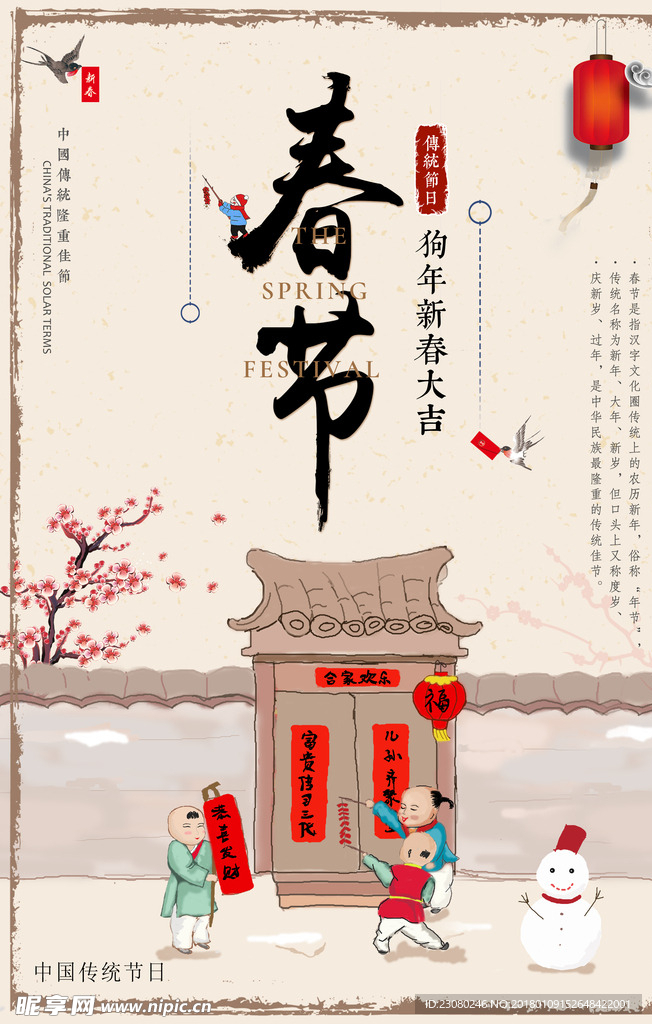 新春
中國傳統隆重佳節
CHINA'S TRADITIONAL SOLAR TERMS
春节
THE
SPRING
FESTIVAL
傳統節日
狗年新春大吉
·春节是指汉字文化圈传统上的农历新年,俗称“年节”,
·传统名称为新年、大年、新岁,但口头上又称度岁、
·庆新岁、过年,是中华民族最隆重的传统佳节。
合家欢乐
福
富贵传万三代
儿孙齐
恭喜发财
中国传统节日
昵享网 www.nipic.cn
ID:23080246 NO:20180109152648422001